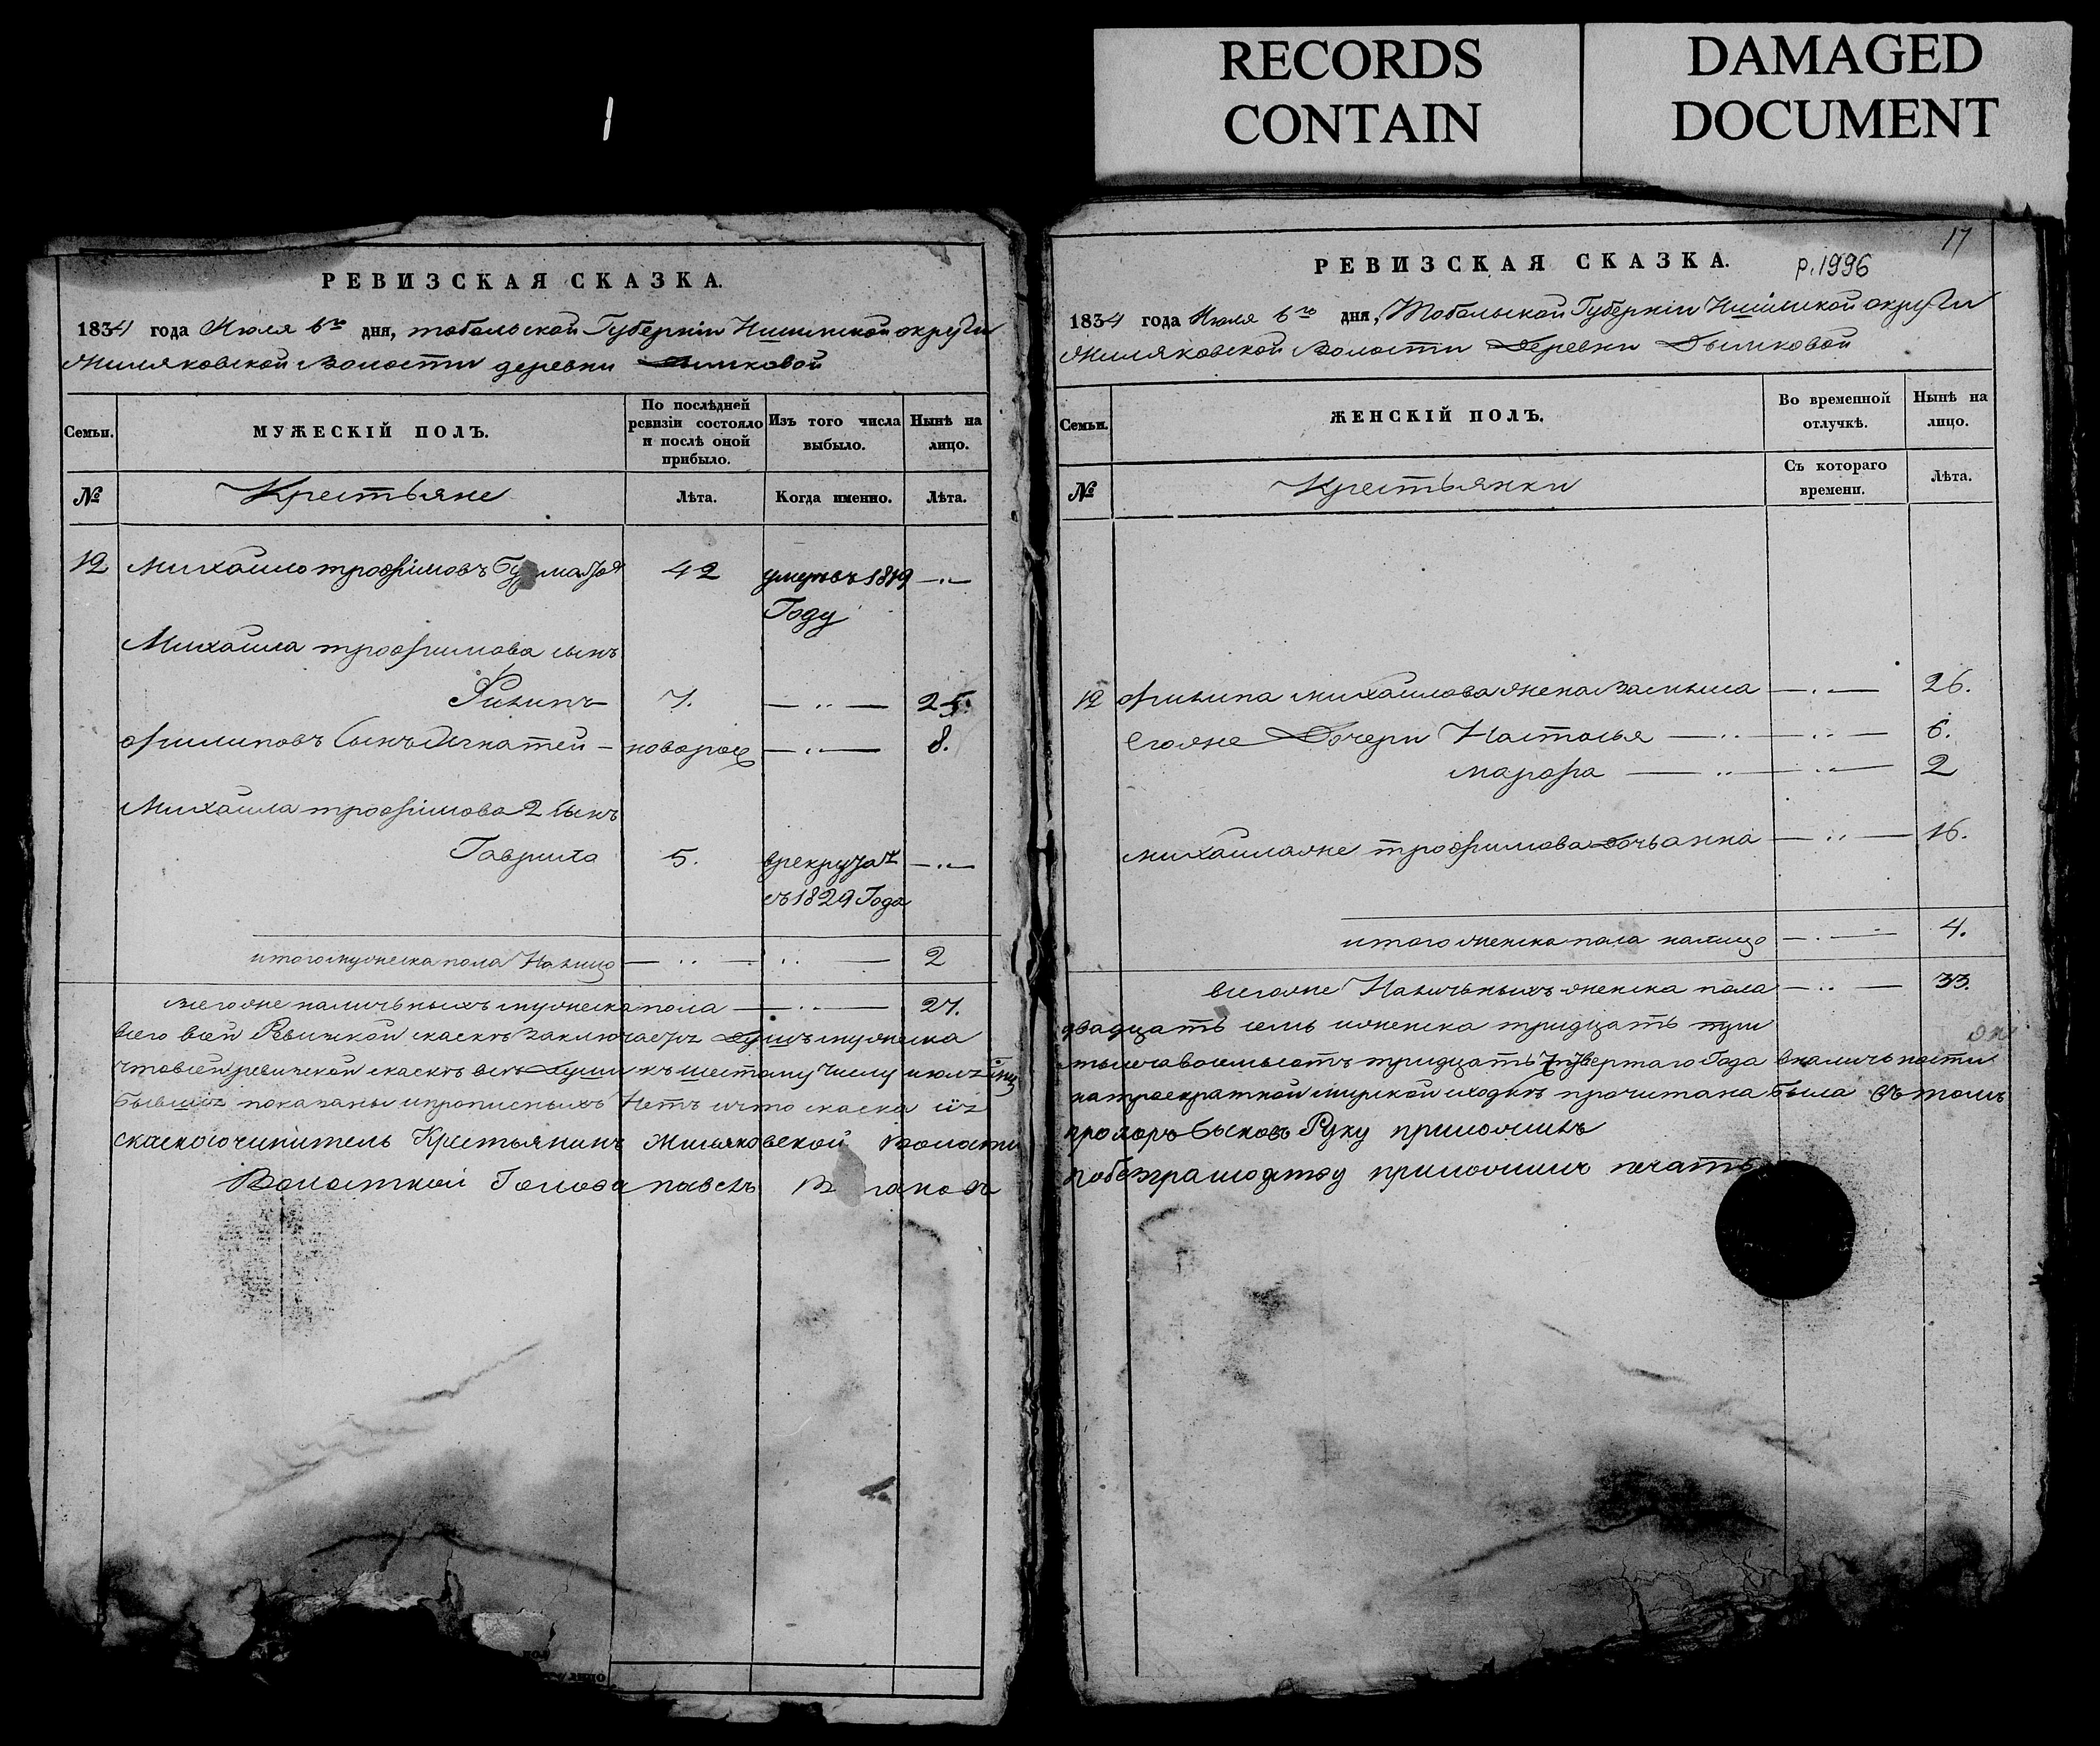 RECORDS
CONTAIN
DAMAGED
DOCUMENT
РЕВИЗСКАЯ СКАЗКА.
1834 года Июля 6го дня, тобольской Губернiи Ишимской округи
Жиляковской Волости деревни Дымковой
Семьи.
МУЖЕСКIЙ ПОЛЪ.
По послѣдней
ревизiи состояло
и послѣ оной
прибыло.
Изъ того числа
выбыло.
Нынѣ на
лицо.
№
Крестьяне
Лѣта.
Когда именно.
Лѣта.
12 Михайло трофiмовъ 42 умеръ в 1819
Году
Михаила трофимова сынъ
Филипъ 7. 25.
Филиповъ Сынъ Игнатей новорож 8.
Михаила трофiмова 2 Сынъ
Гаврила 5. врекрутах
съ 1829 Года
итого мужеска пола Налицо 2
всегоже наличьныхъ мужеска пола 27.
всего в сей Ревижской скаскѣ заключается Душъ мужеска
что в сей ревижской скаскѣ всѣ Души къ шестому Числу июля
бывших показаны и прописныхъ Нетъ и что скаска их
скаскосочинитель Крестьянинъ Жиляковской Волости
Волостной Голова павелъ
17
РЕВИЗСКАЯ СКАЗКА.
р.1996
1834 года Июля 6го дня, Тобольской Губернiи Ишимской округи
Жиляковской Волости Деревни Дымковой
Семьи.
ЖЕНСКIЙ ПОЛЪ.
Во временной
отлучкѣ.
Нынѣ на
лицо.
№
Крестьянки
Съ котораго
времени.
Лѣта.
12 Филипа михайлова жена Васильиса 26.
Егоже Дочери Настасья 6.
марфа 2
михайлаже трофимова дочь анна 16.
итого женска пола налицо 4.
всегоже Наличьныхъ женска пола 33.
двадцать семь иженска тридцать три
тысяча восемьсотъ тридцать Четвертаго Года вналичьности
натроекратной мирской сходкѣ прочитана была въ томъ
прохоръ быковъ Руку приложилъ
побезграмодству приложилъ печать